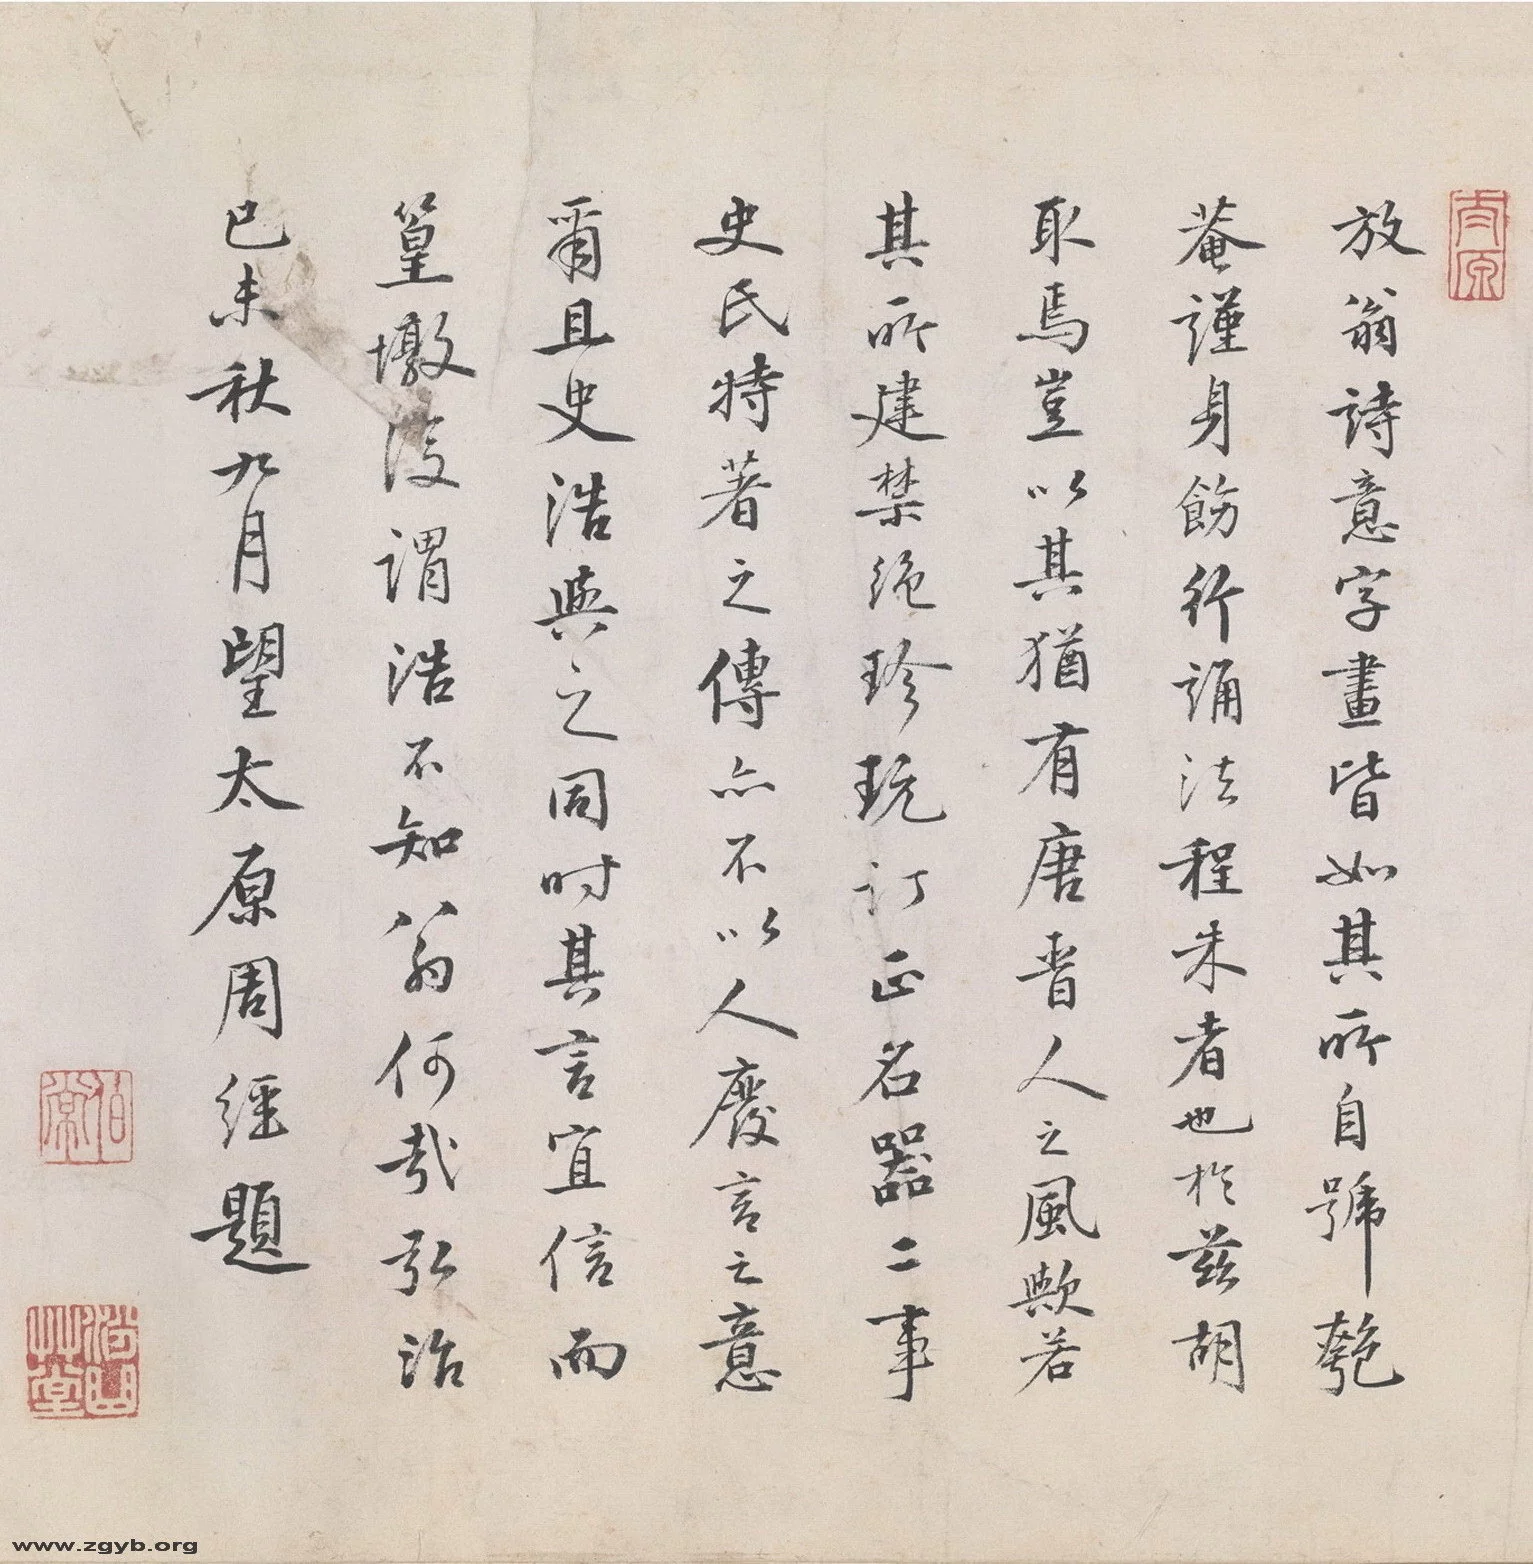 太原
放翁詩意字畫皆如其所自號匏
菴謹身飭行誦法程朱者也於兹胡
取焉豈以其猶有唐晉人之風歟若
其所建禁絶珍玩訂正名器二事
史氏特著之傳亦不以人廢言之意
爾且史浩與之同時其言宜信而
篁墩復謂浩不知翁何哉弘治
己未秋九月望太原周經題
伯常
www.zgyb.org